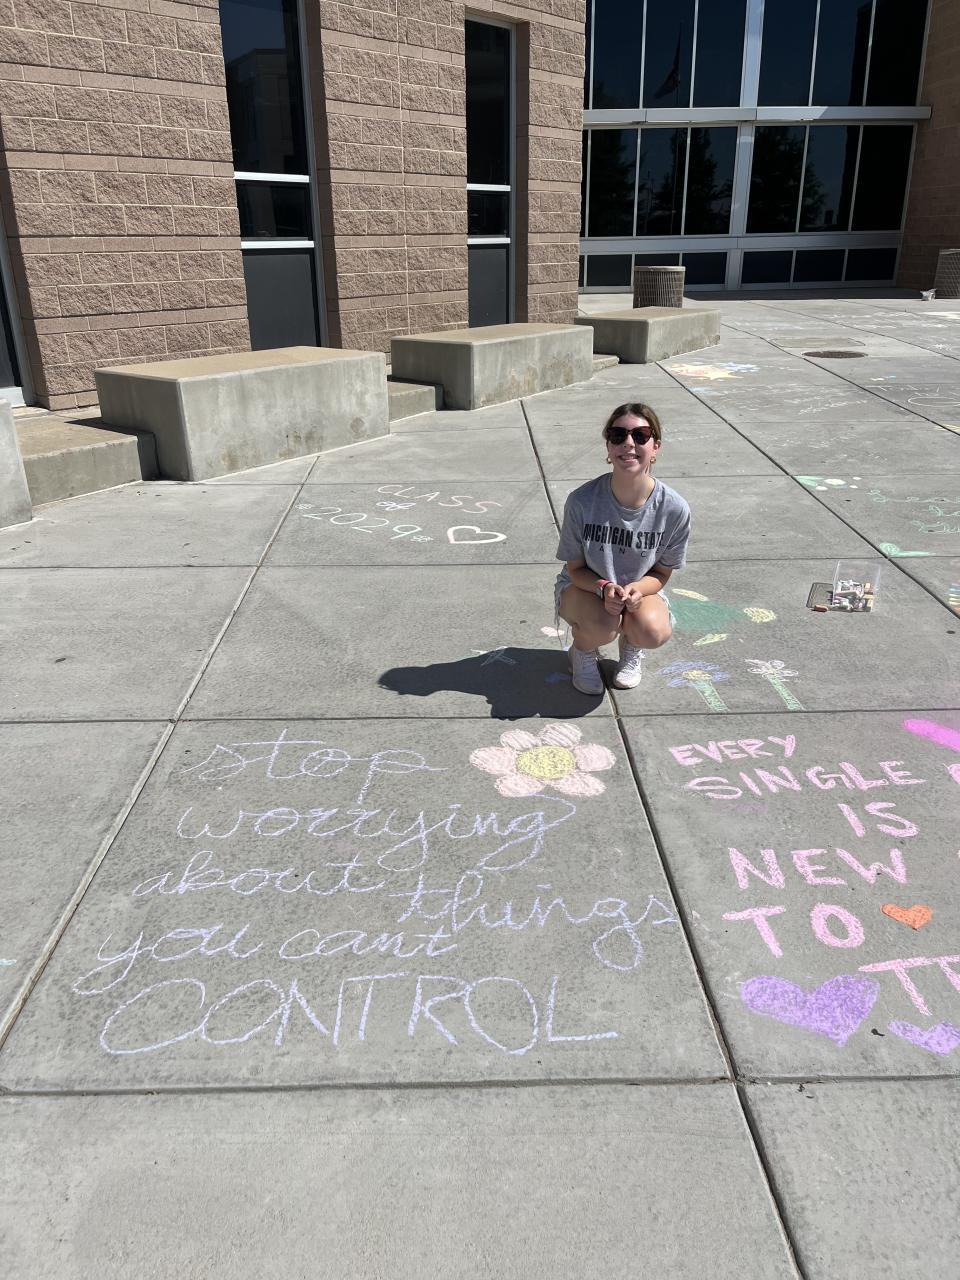 CLASS
of
*2029*
MICHIGAN STATE
stop
worrying
about things
you cant
CONTROL
EVERY
SINGLE
IS
NEW
TO